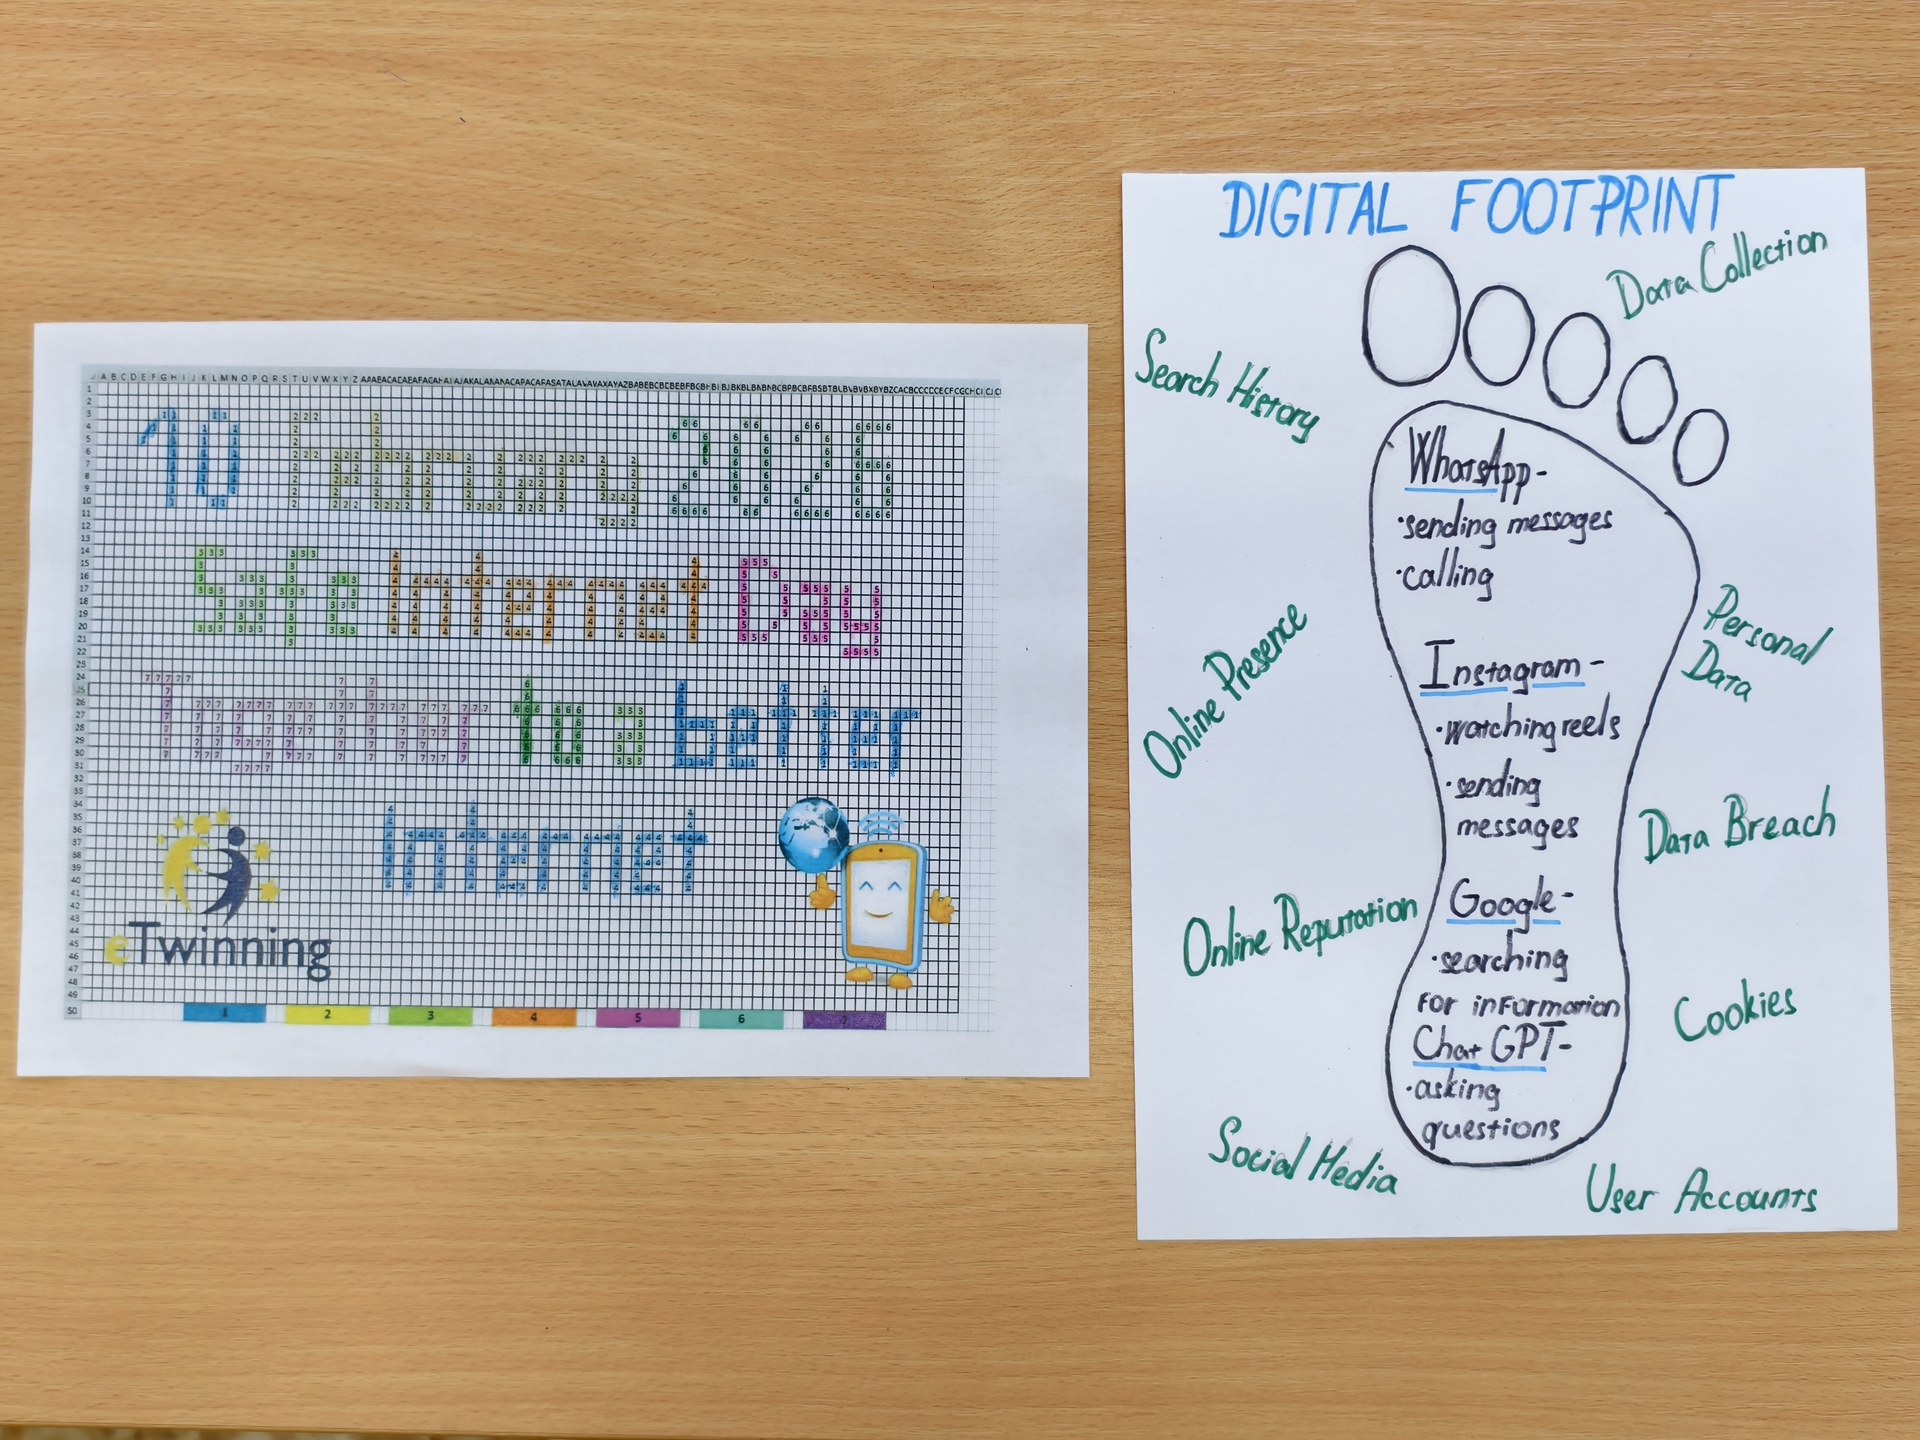 10 February 2026
Safe Internet Day
Together for a better
Internet
eTwinning
1 2 3 4 5 6 7
DIGITAL FOOTPRINT
Data Collection
Search History
WhatsApp-
·sending messages
·calling
Personal
Data
Online Presence
Instagram-
·watching reels
·sending
messages
Data Breach
Online Reputation
Google-
·searching
for information
Cookies
Chat GPT-
·asking
questions
Social Media
User Accounts